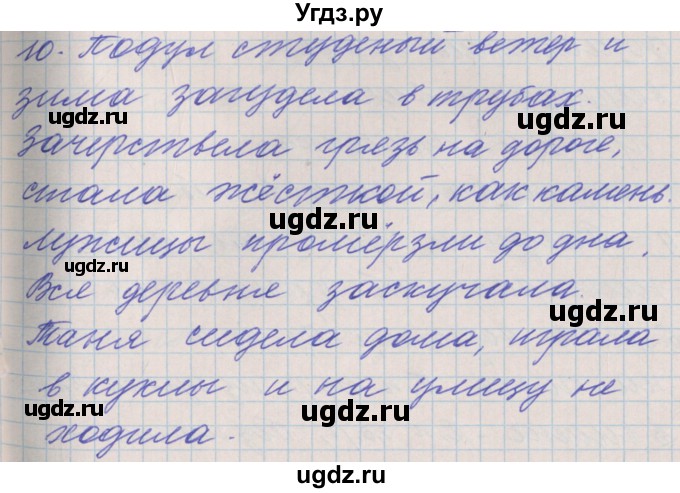 Угдз.ру
10. Подул студеный ветер и
ugdz.ru ugdz.ru
зима загудела в трубах.
ugdz.ru ugdz.ru
Зачерствела грязь на дороге,
стала жёсткой, как камень.
ugdz.ru
Лужицы промёрзли до дна.
ugdz.ru ugdz.ru
Вся деревня заскучала.
ugdz.ru ugdz.ru
Таня сидела дома, играла
в куклы и на улицу не
ugdz.ru ugdz.ru
ходила.
ugdz.ru